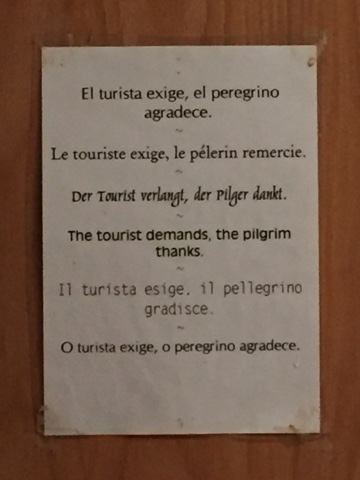 El turista exige, el peregrino
agradece.
~
Le touriste exige, le pélerin remercie.
~
Der Tourist verlangt, der Pilger dankt.
~
The tourist demands, the pilgrim
thanks.
~
Il turista esige. il pellegrino
gradisce.
~
O turista exige, o peregrino agradece.